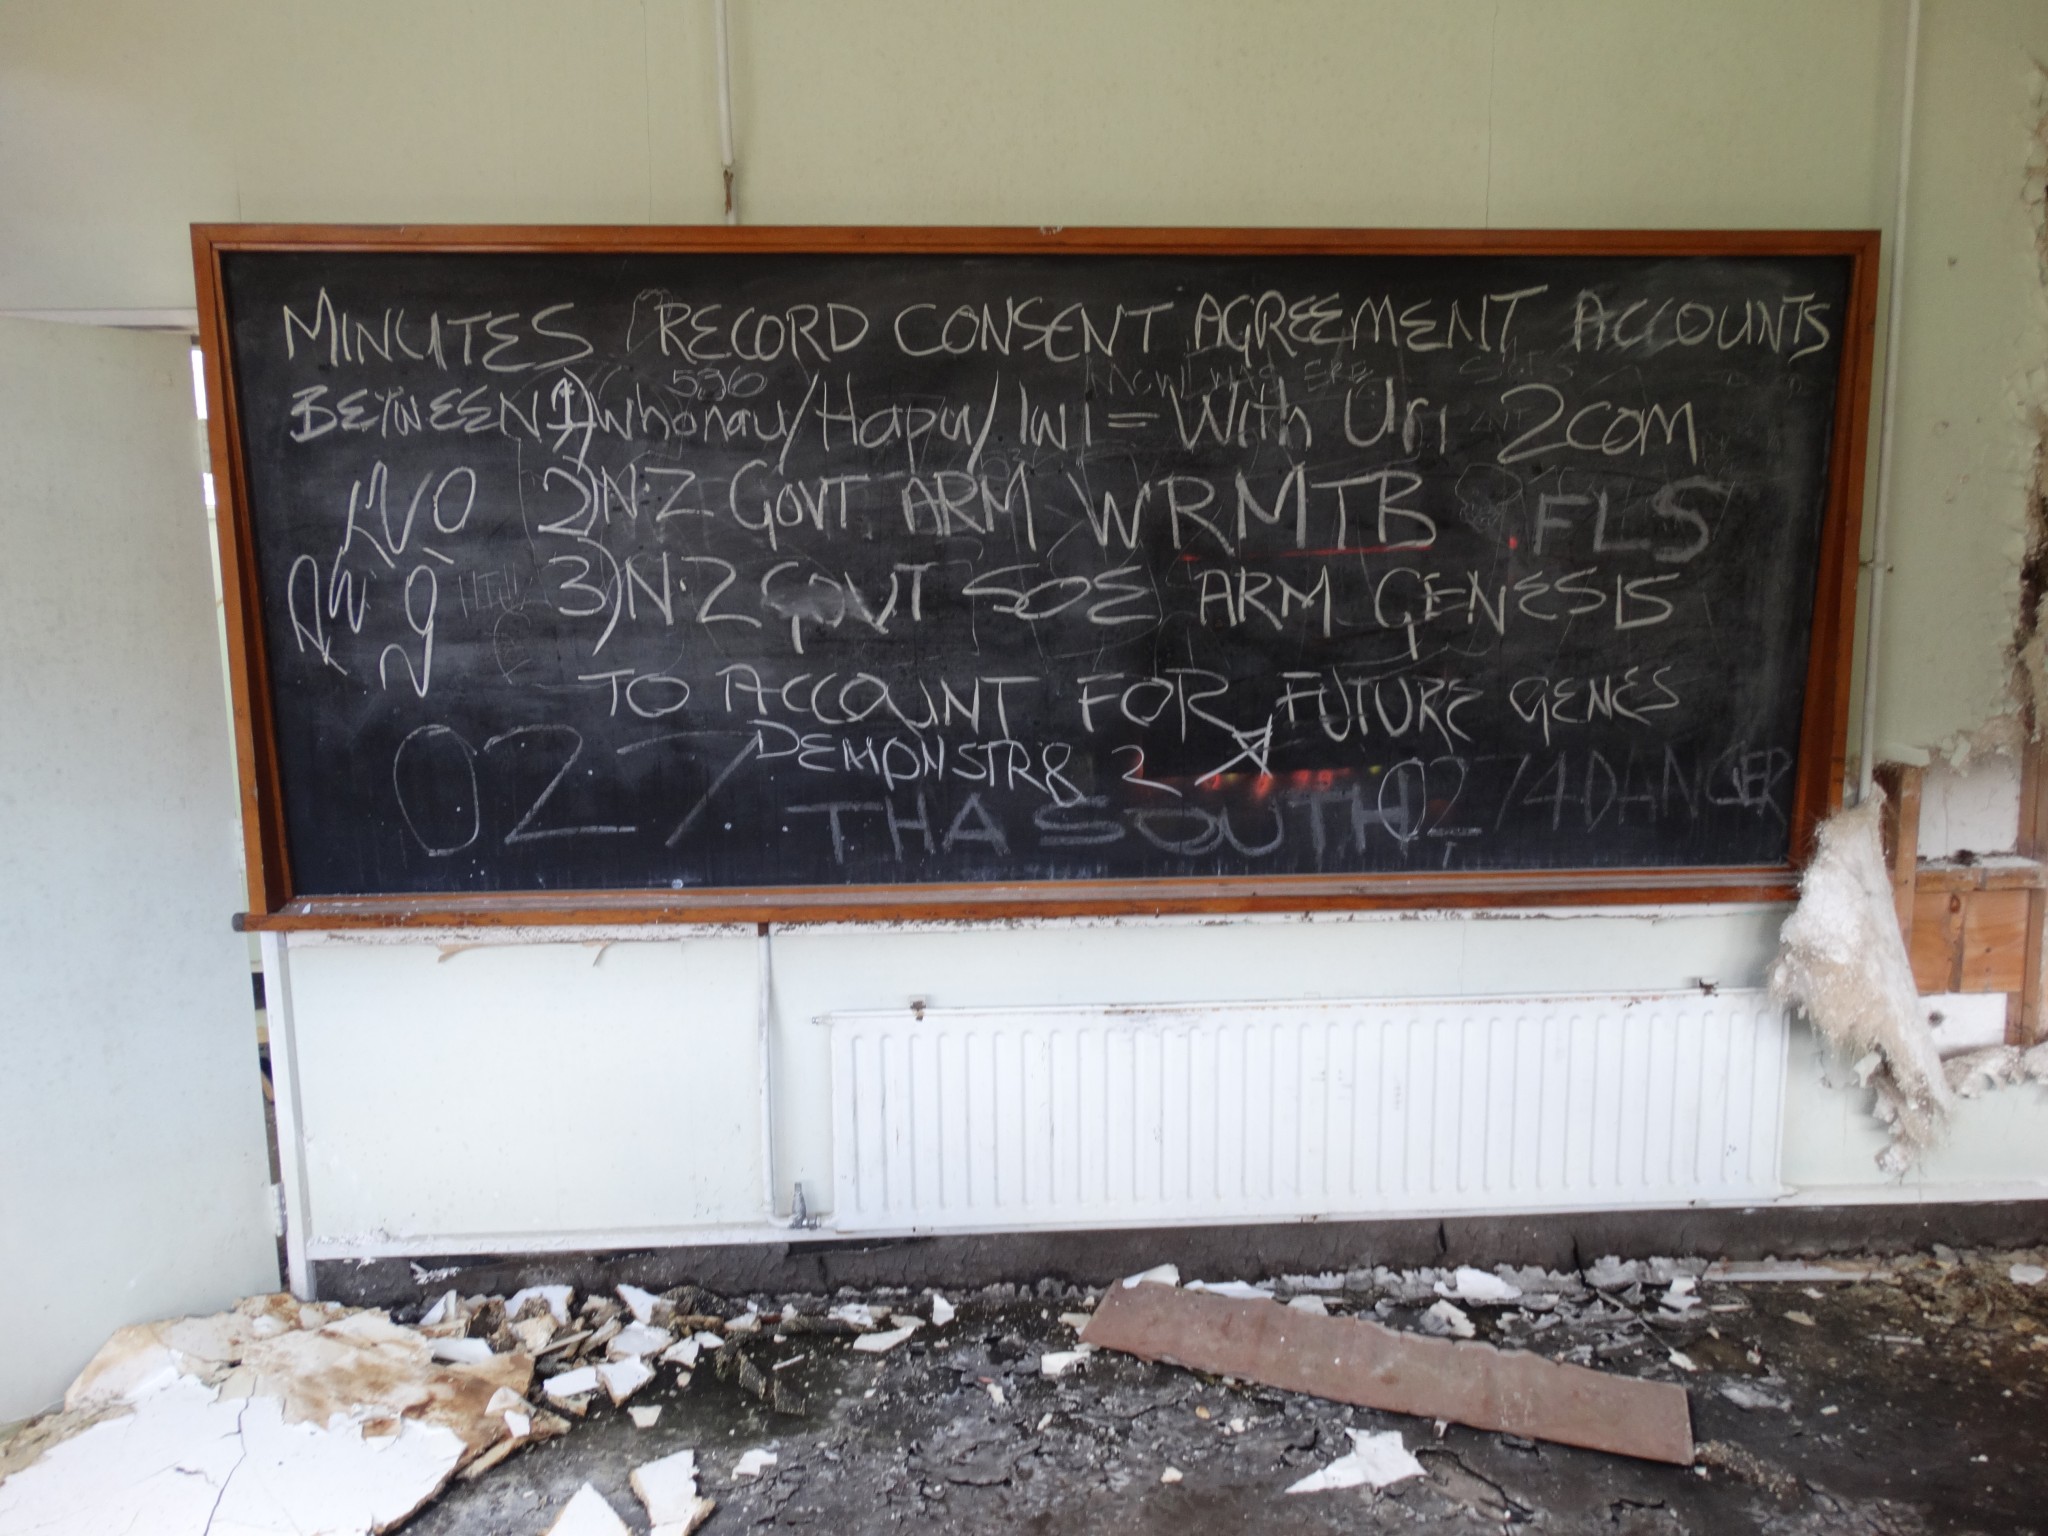 MINUTES RECORD CONSENT AGREEMENT ACCOUNTS
536
BETWEEN 1) whanau/Hapu/Iwi = With Uri 2COM
2) N.Z GOVT ARM WRMTB FLS
3) N.Z GOVT SOE ARM GENESIS
TO ACCOUNT FOR FUTURE GENES
DEMONSTR8 2
027
THA SOUTH
0274DANGER